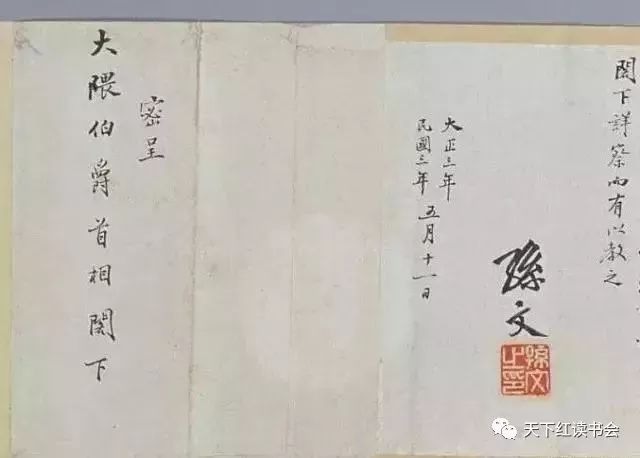 閣下詳察而有以教之
孫文
孫文之印
大正三年
民國三年 五月十一日
密呈
大隈伯爵首相閣下
天下红读书会